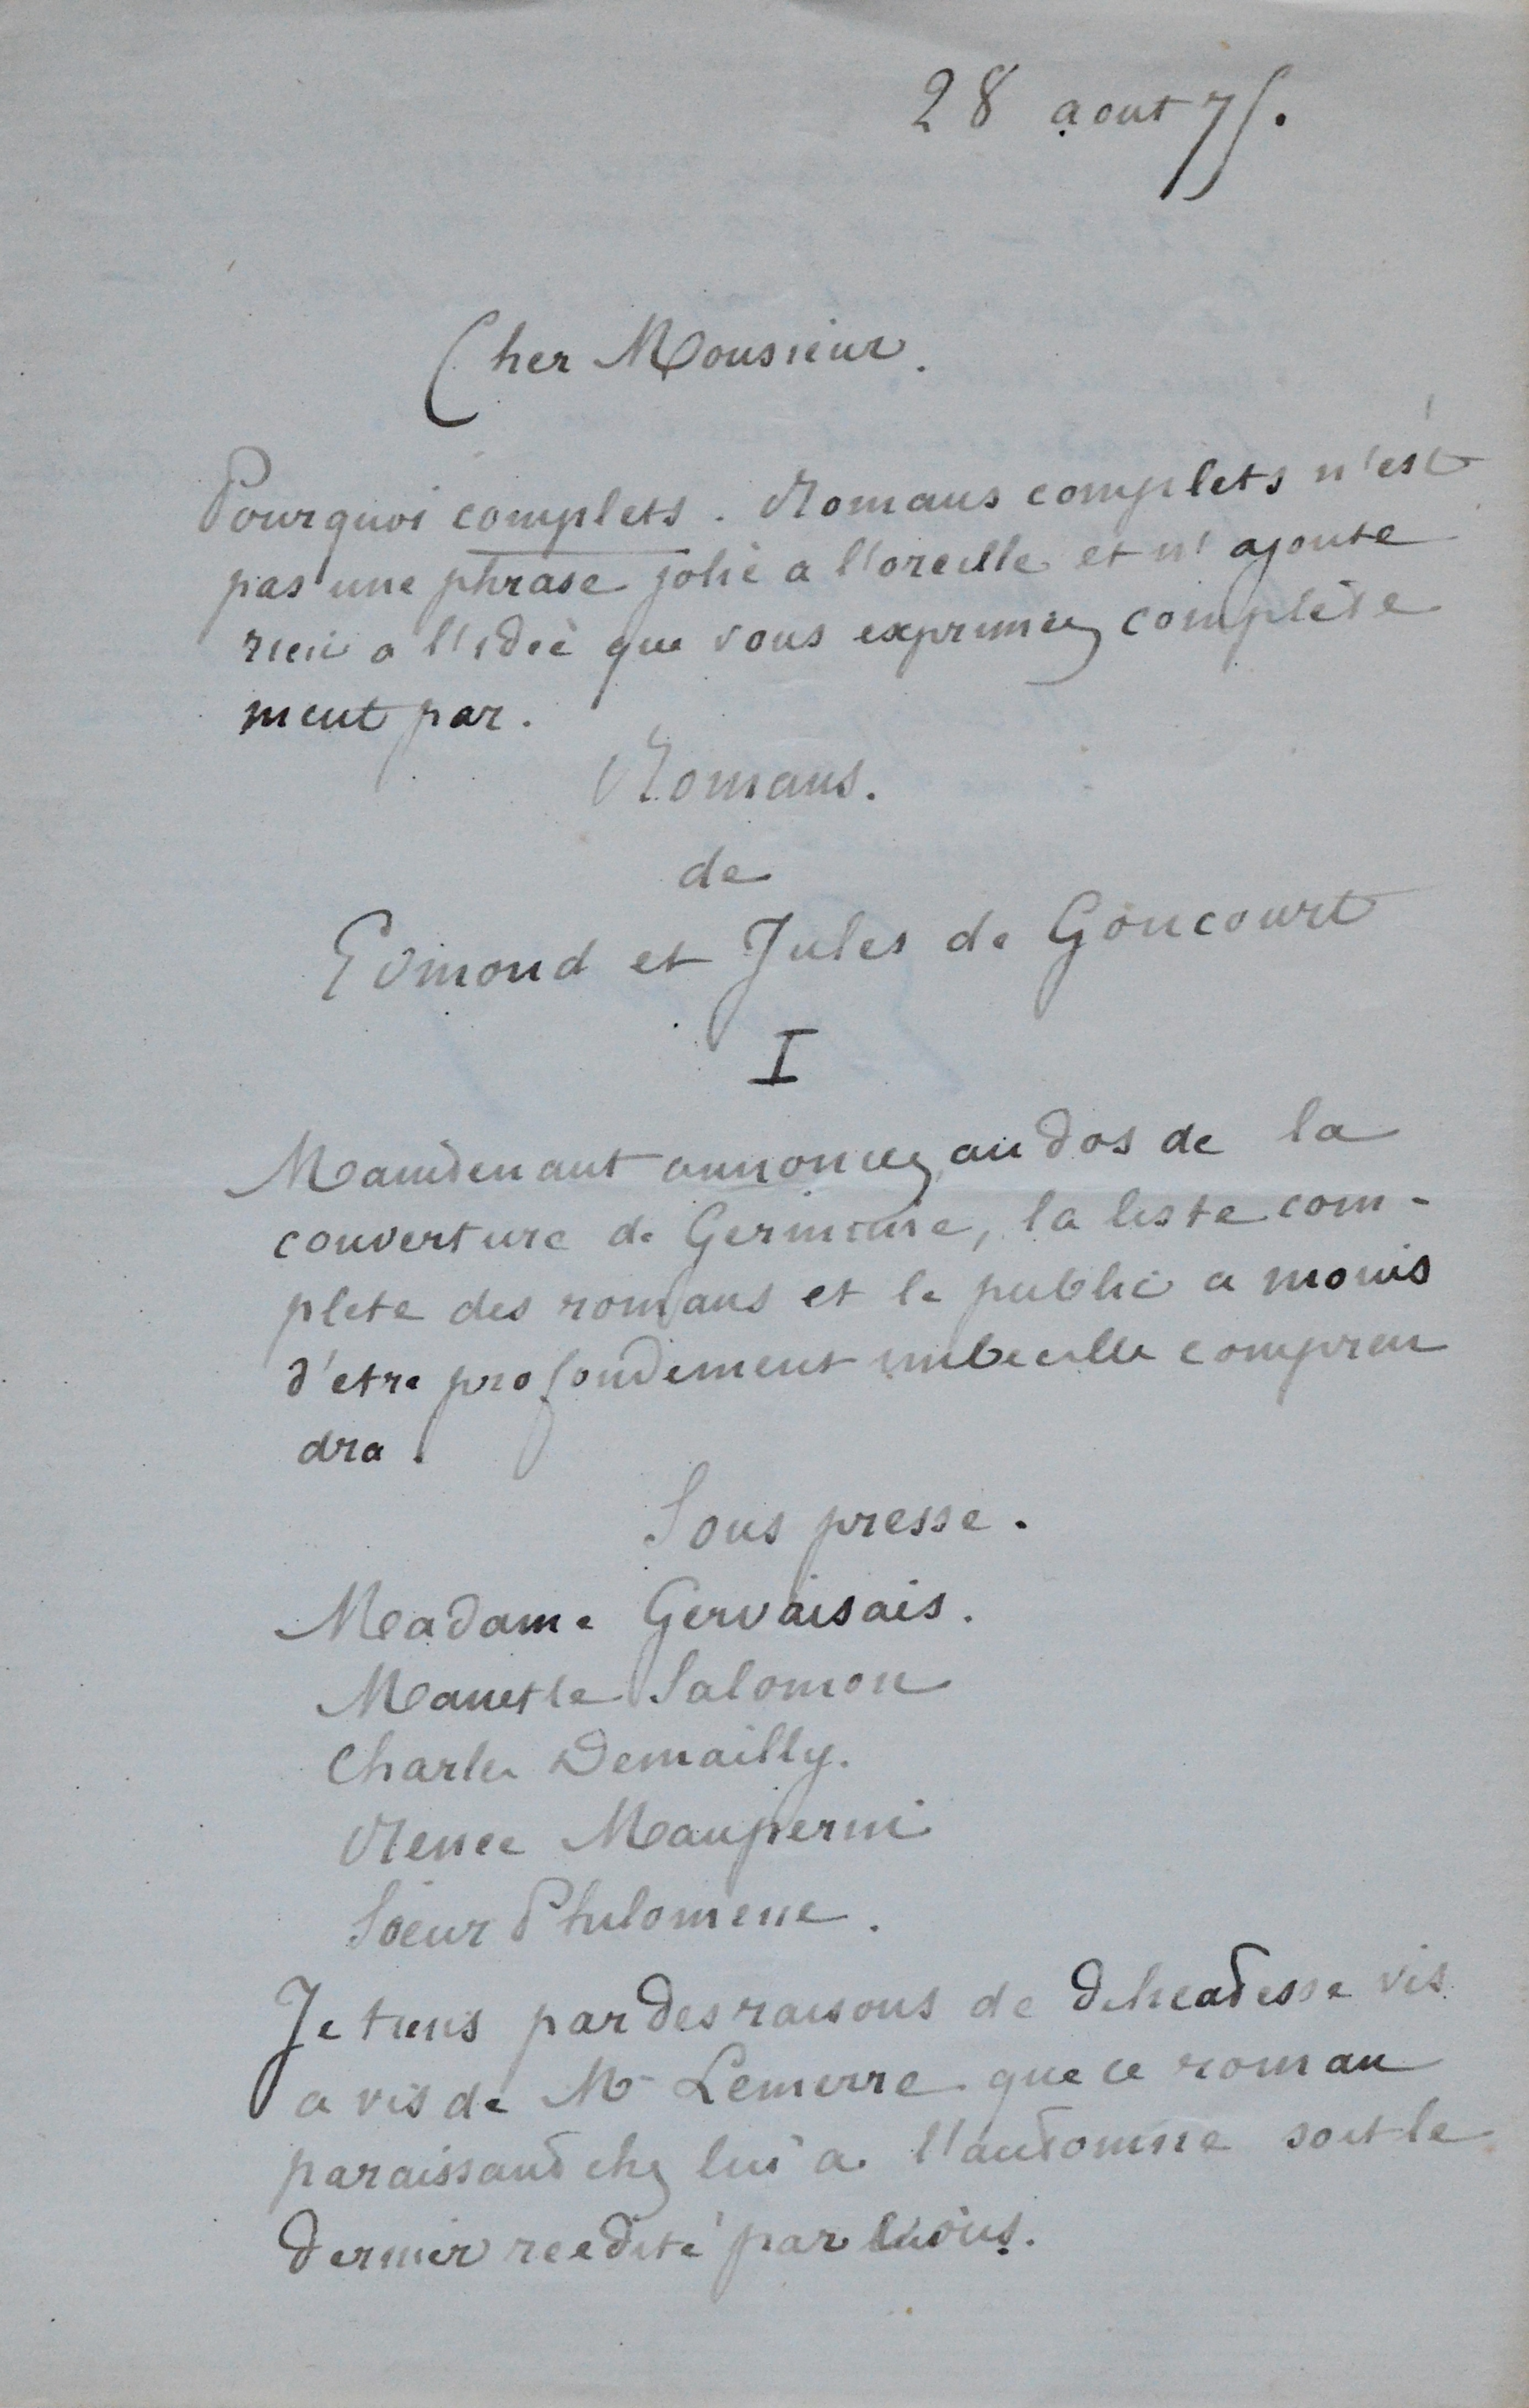 28 aout 75.
Cher Monsieur.
Pourquoi complets. Romans complets n'est
pas une phrase jolie a l'oreille et n'ajoute
rien a l'idée que vous exprimez complète
ment par.
Romans.
de
Edmond et Jules de Goncourt
I
Maintenant annoncez au dos de la
couverture de Germinie, la liste com-
plete des romans et le public a moins
d'etre profondement imbecille compren
dra.
Sous presse.
Madame Gervaisais.
Manette Salomon
Charles Demailly.
Renee Mauperin
Soeur Philomene.
Je tiens par des raisons de delicatesse vis
a vis de Mr Lemerre que ce roman
paraissant chez lui a l'automne soit le
dernier reedité par vous.